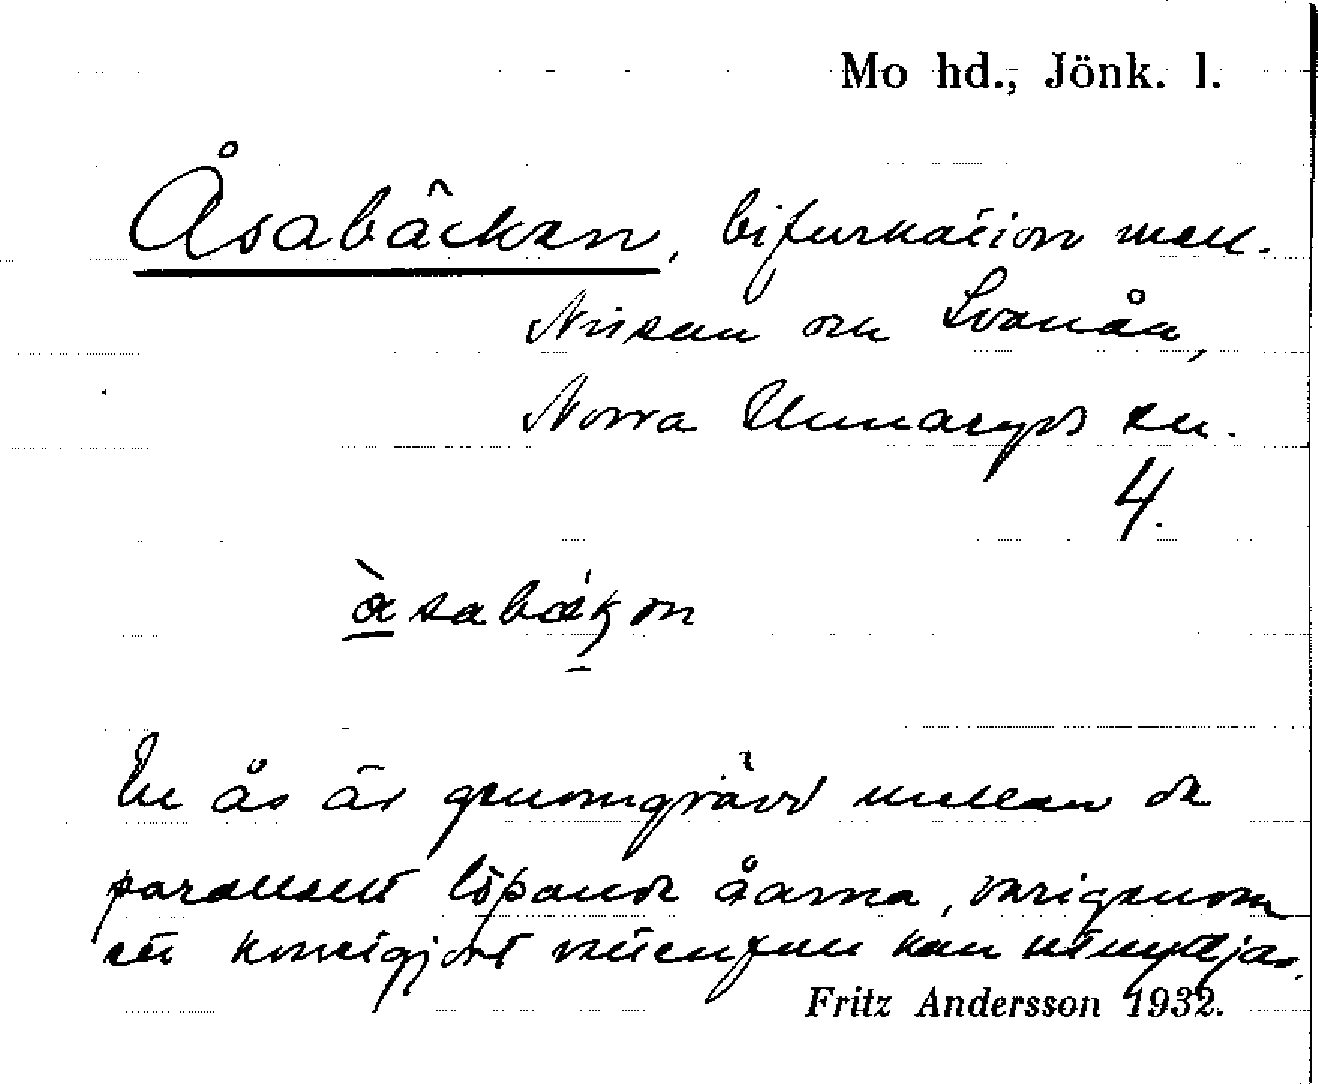 Mo hd., Jönk. l.
Åsabäcken, bifurkation mell.
Nissan och Svanån,
Norra Unnaryds sn.
4.
En ås är genomgrävd mellan de
parallellt löpande åarna, varigenom
ett konstgjort vattenfall kan utnyttjas.
Fritz Andersson 1932.